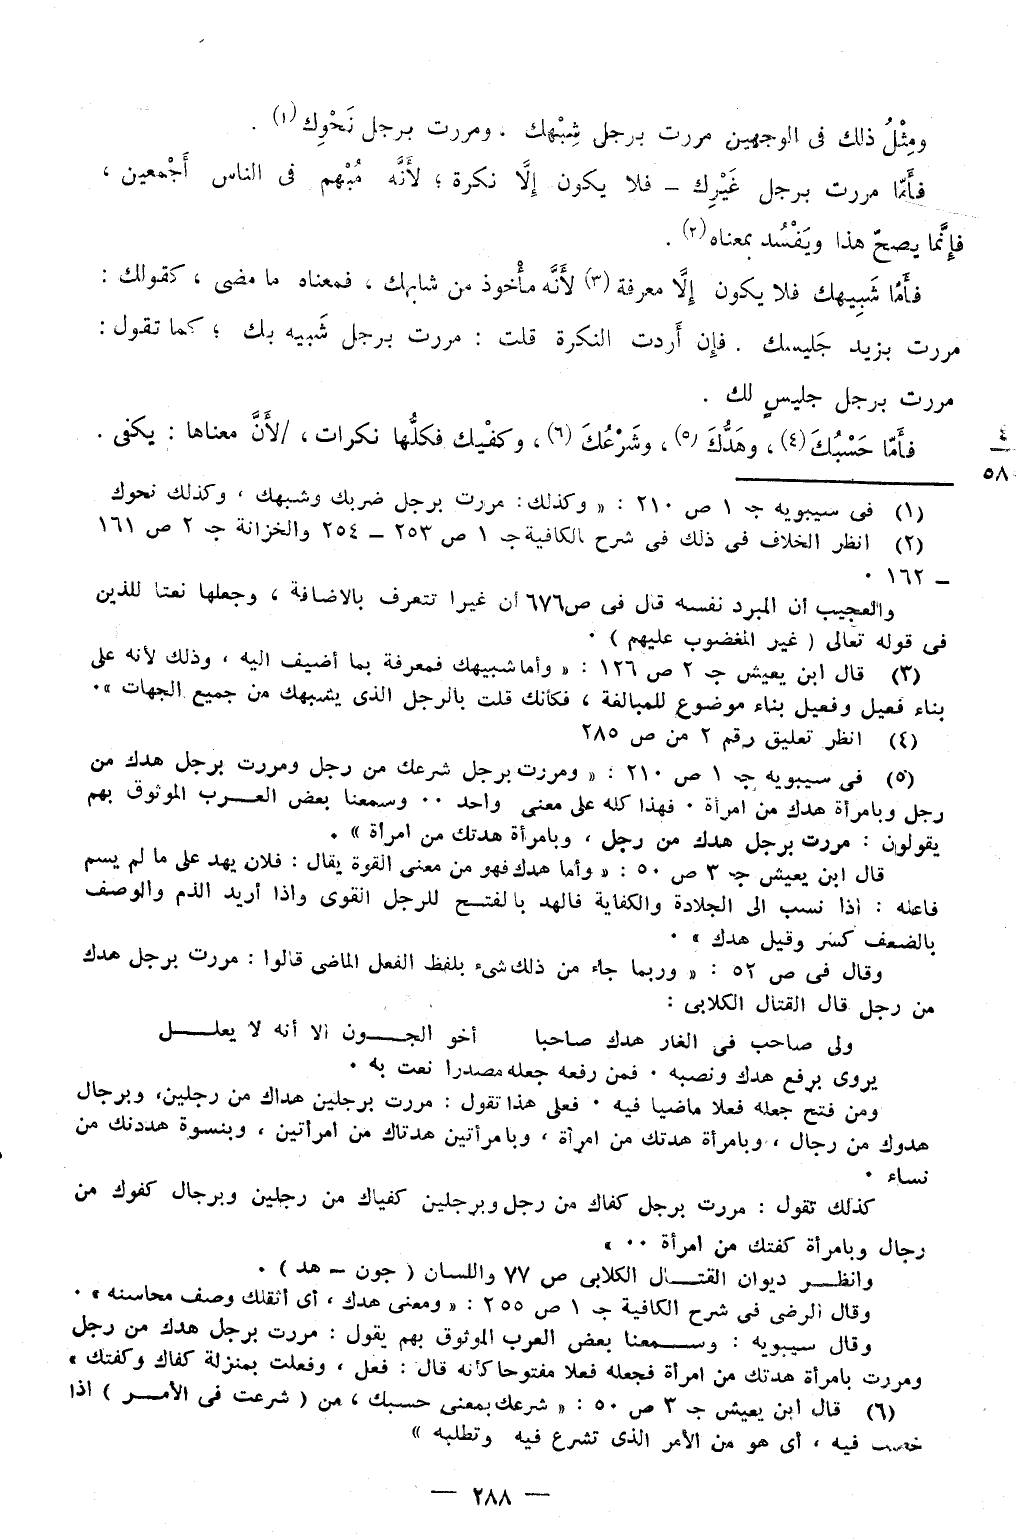 ومِثْلُ ذلك فى الوجهين مررت برجل شِبْهِك . ومررت برجل نَحْوِك (١) .
فأَمّا مررت برجل غَيْرِك – فلا يكون إلَّا نكرة ؛ لأَنَّه مُبْهم فى الناس أَجْمعين ،
فإنَّما يصحّ هذا ويَفْسُد بمعناه (٢) .
فأَمَّا شَبِيهك فلا يكون إلَّا معرفة (٣) لأَنَّه مأْخوذ من شابهك ، فمعناه ما مضى ، كقولك :
مررت بزيد جَليسك . فإن أَردت النكرة قلت : مررت برجل شَبيه بك ؛ كما تقول :
مررت برجل جليسٍ لك .
فأَمّا حَسْبُكَ (٤) ، وهَدُّكَ (٥) ، وشَرْعُكَ (٦) ، وكفْيك فكلُّها نكرات ، /لأَنَّ معناها : يكفى .
٤
٥٨
(١) فى سيبويه جـ ١ ص ٢١٠ : « وكذلك : مررت برجل ضربك وشبهك ، وكذلك نحوك
(٢) انظر الخلاف فى ذلك فى شرح الكافية جـ ١ ص ٢٥٣ – ٢٥٤ والخزانة جـ ٢ ص ١٦١
– ١٦٢ ٠
والعجيب أن المبرد نفسه قال فى ص٦٧٦ أن غيرا تتعرف بالاضافة ، وجعلها نعتا للذين
فى قوله تعالى ( غير المغضوب عليهم ) ٠
(٣) قال ابن يعيش جـ ٢ ص ١٢٦ : « وأما شبيهك فمعرفة بما أضيف اليه ، وذلك لأنه على
بناء فعيل وفعيل بناء موضوع للمبالغة ، فكأنك قلت بالرجل الذى يشبهك من جميع الجهات »٠
(٤) انظر تعليق رقم ٢ من ص ٢٨٥
(٥) فى سيبويه جـ ١ ص ٢١٠ : « ومررت برجل شرعك من رجل ومررت برجل هدك من
رجل وبامرأة هدك من امرأة ٠ فهذا كله على معنى واحد ٠٠ وسمعنا بعض العرب الموثوق بهم
يقولون : مررت برجل هدك من رجل ، وبامرأة هدتك من امرأة » ٠
قال ابن يعيش جـ ٣ ص ٥٠ : « وأما هدك فهو من معنى القوة يقال : فلان يهد على ما لم يسم
فاعله : اذا نسب الى الجلادة والكفاية فالهد بالفتح للرجل القوى واذا أريد الذم والوصف
بالضعف كسر وقيل هدك » ٠
وقال فى ص ٥٢ : « وربما جاء من ذلك شىء بلفظ الفعل الماضى قالوا : مررت برجل هدك
من رجل قال القتال الكلابى :
ولى صاحب فى الغار هدك صاحبا أخو الجـــون الا أنه لا يعلـــل
يروى برفع هدك ونصبه ٠ فمن رفعه جعله مصدرا نعت به ٠
ومن فتح جعله فعلا ماضيا فيه ٠ فعلى هذا تقول : مررت برجلين هداك من رجلين، وبرجال
هدوك من رجال ، وبامرأة هدتك من امرأة ، وبامرأتين هدتاك من امرأتين ، وبنسوة هددنك من
نساء ٠
كذلك تقول : مررت برجل كفاك من رجل وبرجلين كفياك من رجلين وبرجال كفوك من
رجال وبامرأة كفتك من امرأة ٠٠ »
وانظــر ديوان القتــال الكلابى ص ٧٧ واللسان ( جون – هد ) ٠
وقال الرضى فى شرح الكافية جـ ١ ص ٢٥٥ : « ومعنى هدك ، أى أثقلك وصف محاسنه » ٠
وقال سيبويه : وســمعنا بعض العرب الموثوق بهم يقول : مررت برجل هدك من رجل
ومررت بامرأة هدتك من امرأة فجعله فعلا مفتوحا كأنه قال : فعل ، وفعلت بمنزلة كفاك وكفتك »
(٦) قال ابن يعيش جـ ٣ ص ٥٠ : « شرعك بمعنى حسبك ، من ( شرعت فى الأمــر ) اذا
فيه ، أى هو من الأمر الذى تشرع فيه وتطلبه »
— ٢٨٨ —